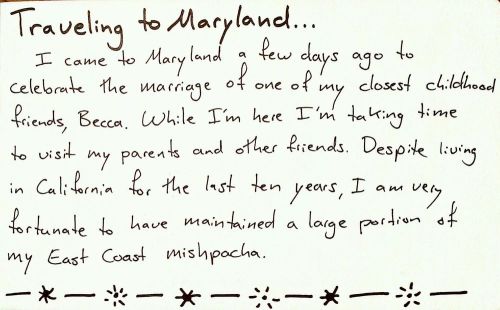 Traveling to Maryland...
I came to Maryland a few days ago to
celebrate the marriage of one of my closest childhood
friends, Becca. While I'm here I'm taking time
to visit my parents and other friends. Despite living
in California for the last ten years, I am very
fortunate to have maintained a large portion of
my East Coast mishpacha.